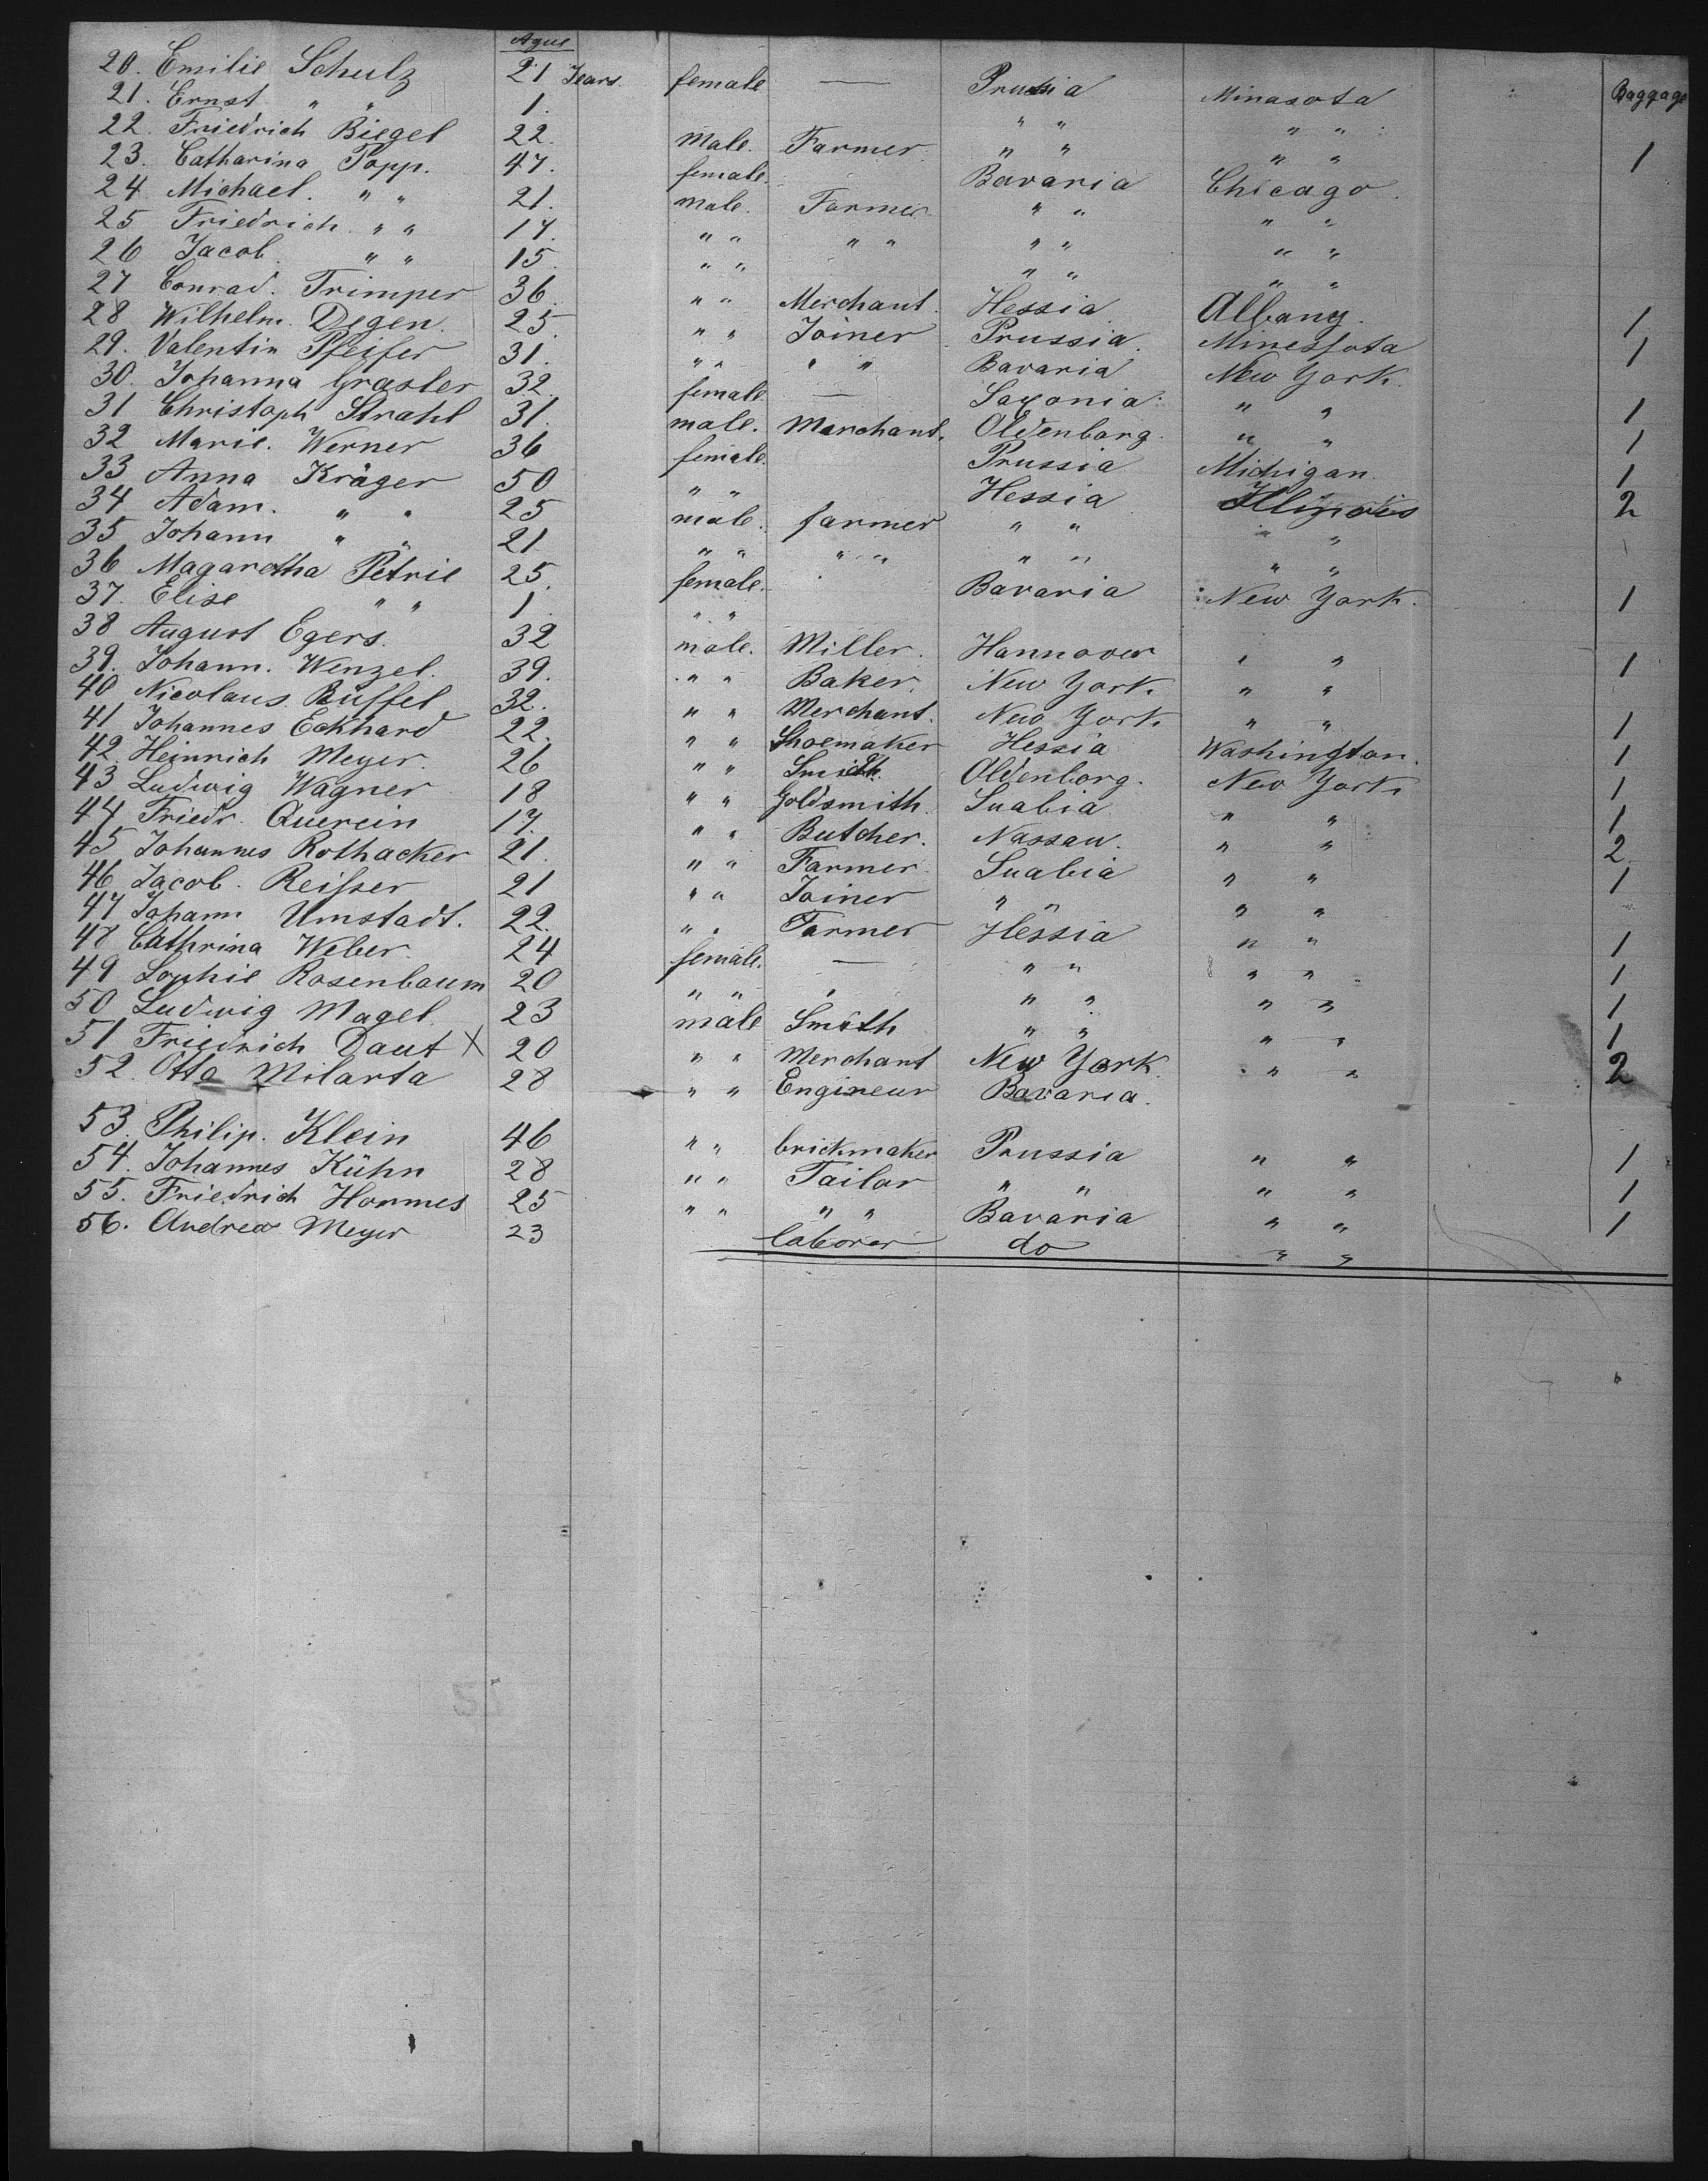 Ague Baggage
20. Emilie Schulz 21 Years. female — Prussia Minasota
21. Ernst " " 1. " " " "
22. Friedrich Biegel 22. Male. Farmer " " " " 1
23. Catharina Popp. 47. female. Bavaria Chicago.
24 Michael. " " 21. male. Farmer " " " "
25 Friedrich " " 17. " " " " " " " "
26 Jacob. " " 15. " " " " " "
27 Conrad. Trimper 36. " " Merchant. Hessia Albany. 1
28 Wilhelm. Degen. 25. " " Joiner Prussia. Minessota 1
29. Valentin Pfeifer 31. " " " " Bavaria New York.
30. Johanna Grasler 32. female — Saxonia. " " 1
31 Christoph Strahl 31. male. Merchant. Oldenborg " " 1
32 Marie. Werner 36 female. Prussia Michigan. 1
33 Anna Kräger 50 " " Hessia Illinois 2
34 Adam. " " 25 male. farmer " " " "
35 Johann " " 21 " " " " " " " "
36 Magaretha Petrie 25. female. Bavaria New York. 1
37. Elise " " 1. " "
38 August Egers. 32 male. Miller. Hannover " " 1
39. Johann. Wenzel. 39. " " Baker. New York. " "
40 Nicolaus. Büffel 32. " " Merchant. New York " " 1
41 Johannes Eckhard 22. " " Shoemaker Hessia Washington. 1
42. Heinrich Meyer. 26 " " Smith. Oldenborg. New York 1
43 Ludwig Wagner 18 " " Goldsmith. Suabia " " 1
44 Friedr. Querein 17. " " Butcher. Nassau. " " 2
45 Johannes Rothacker 21. " " Farmer Suabia " " 1
46 Jacob. Reisser 21 " " Joiner " " " "
47 Johann Umstadt. 22. " " Farmer Hessia " " 1
48 Cathrina Weber. 24 female. — " " " " 1
49 Sophie Rosenbaum 20 " " " " " " " 1
50 Ludwig Magel 23 male Smith " " " " 1
51 Friedrich Daut X 20 " " Merchant New York. " " 2
52. Otto Milarta 28 " " Engineur Bavaria.
53. Philip. Klein 46 " " brickmaker Prussia " " 1
54. Johannes Kühn 28 " " Tailar " " " " 1
55. Friedrich Hormes 25 " " " " Bavaria " " 1
56. Andrea Meyer 23 laborer do " "